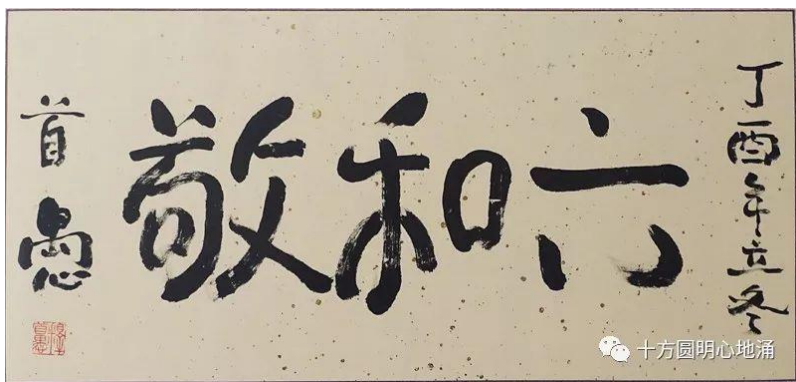 丁酉年立冬
六和敬
首愚
十方圆明心地涌